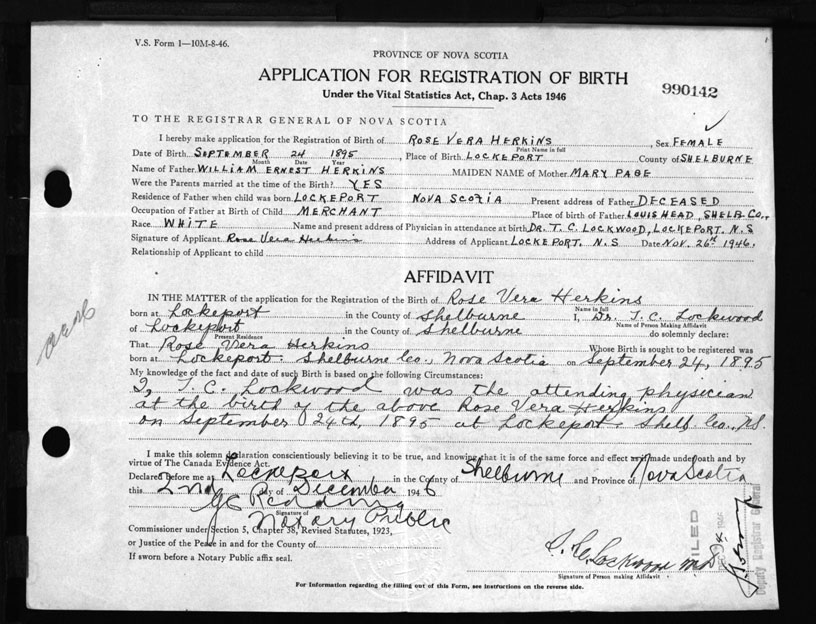 V.S. Form 1—10M-8-46.
PROVINCE OF NOVA SCOTIA
APPLICATION FOR REGISTRATION OF BIRTH
Under the Vital Statistics Act, Chap. 3 Acts 1946
990142
TO THE REGISTRAR GENERAL OF NOVA SCOTIA
I hereby make application for the Registration of Birth of ROSE VERA HERKINS, Sex FEMALE
Print Name in full
Date of Birth SEPTEMBER 24 1895, Place of Birth LOCKEPORT County of SHELBURNE
Month Date Year
Name of Father WILLIAM ERNEST HERKINS MAIDEN NAME of Mother MARY PAGE
Were the Parents married at the time of the Birth? YES
Residence of Father when child was born LOCKEPORT NOVA SCOTIA Present address of Father DECEASED
Occupation of Father at Birth of Child MERCHANT Place of birth of Father LOUIS HEAD, SHELB. CO.,
Race WHITE Name and present address of Physician in attendance at birth DR. T. C. LOCKWOOD, LOCKEPORT. N.S
Signature of Applicant Rose Vera Herkins Address of Applicant LOCKEPORT. N.S Date NOV. 26th 1946.
Relationship of Applicant to child
AFFIDAVIT
IN THE MATTER of the application for the Registration of the Birth of Rose Vera Herkins
Name in full
born at Lockeport in the County of Shelburne I, Dr. T.C. Lockwood
Name of Person Making Affidavit
of Lockeport in the County of Shelburne do solemnly declare:
Present Residence
That Rose Vera Herkins Whose Birth is sought to be registered was
born at Lockeport: Shelburne Co., Nova Scotia on September 24, 1895
My knowledge of the fact and date of such Birth is based on the following Circumstances:
I, T.C. Lockwood was the attending physician
at the birth of the above Rose Vera Herkins
on September 24th, 1895 at Lockeport, Shelb. Co., N.S.
I make this solemn declaration conscientiously believing it to be true, and knowing that it is of the same force and effect as if made under oath and by
virtue of The Canada Evidence Act.
Declared before me at Lockeport in the County of Shelburne and Province of Nova Scotia
this 2nd day of December 1946
Signature of
Notary Public
Commissioner under Section 5, Chapter 38, Revised Statutes, 1923,
or Justice of the Peace in and for the County of
If sworn before a Notary Public affix seal.
T. C. Lockwood M.D.
Signature of Person making Affidavit
FILED
Deputy Registrar General
For Information regarding the filling out of this Form, see instructions on the reverse side.